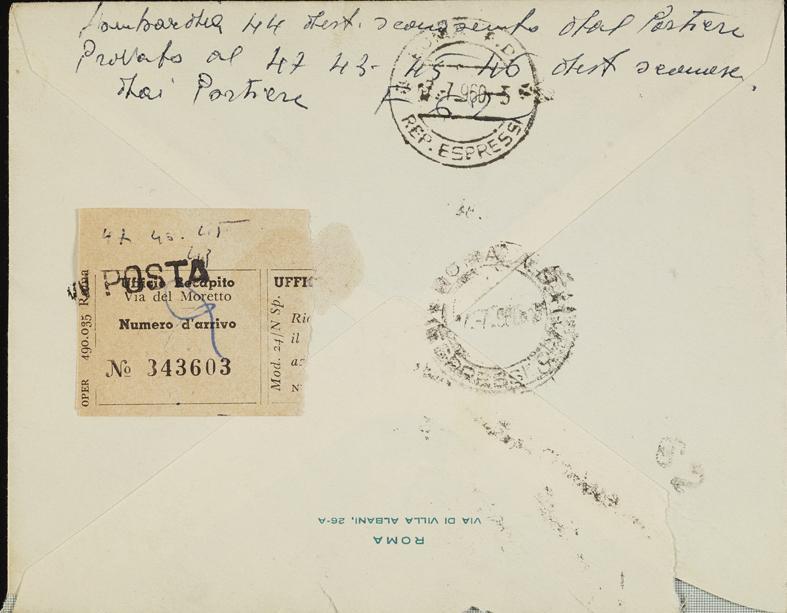 Lombardia 44 dest. sconosciuto dal Portiere
Provato al 47 43- 45 46 dest sconosc.
dai Portiere
-7.960
REP. ESPRESSI
47 43. 45
43
POSTA
Ufficio Recapito
Via del Moretto
Numero d'arrivo
№ 343603
OPER 490.035 Roma
UFFI
Mod. 24/N Sp.
Ric
il
az
N
ROMA
ESPRESSI
62
VIA DI VILLA ALBANI, 26-A
ROMA